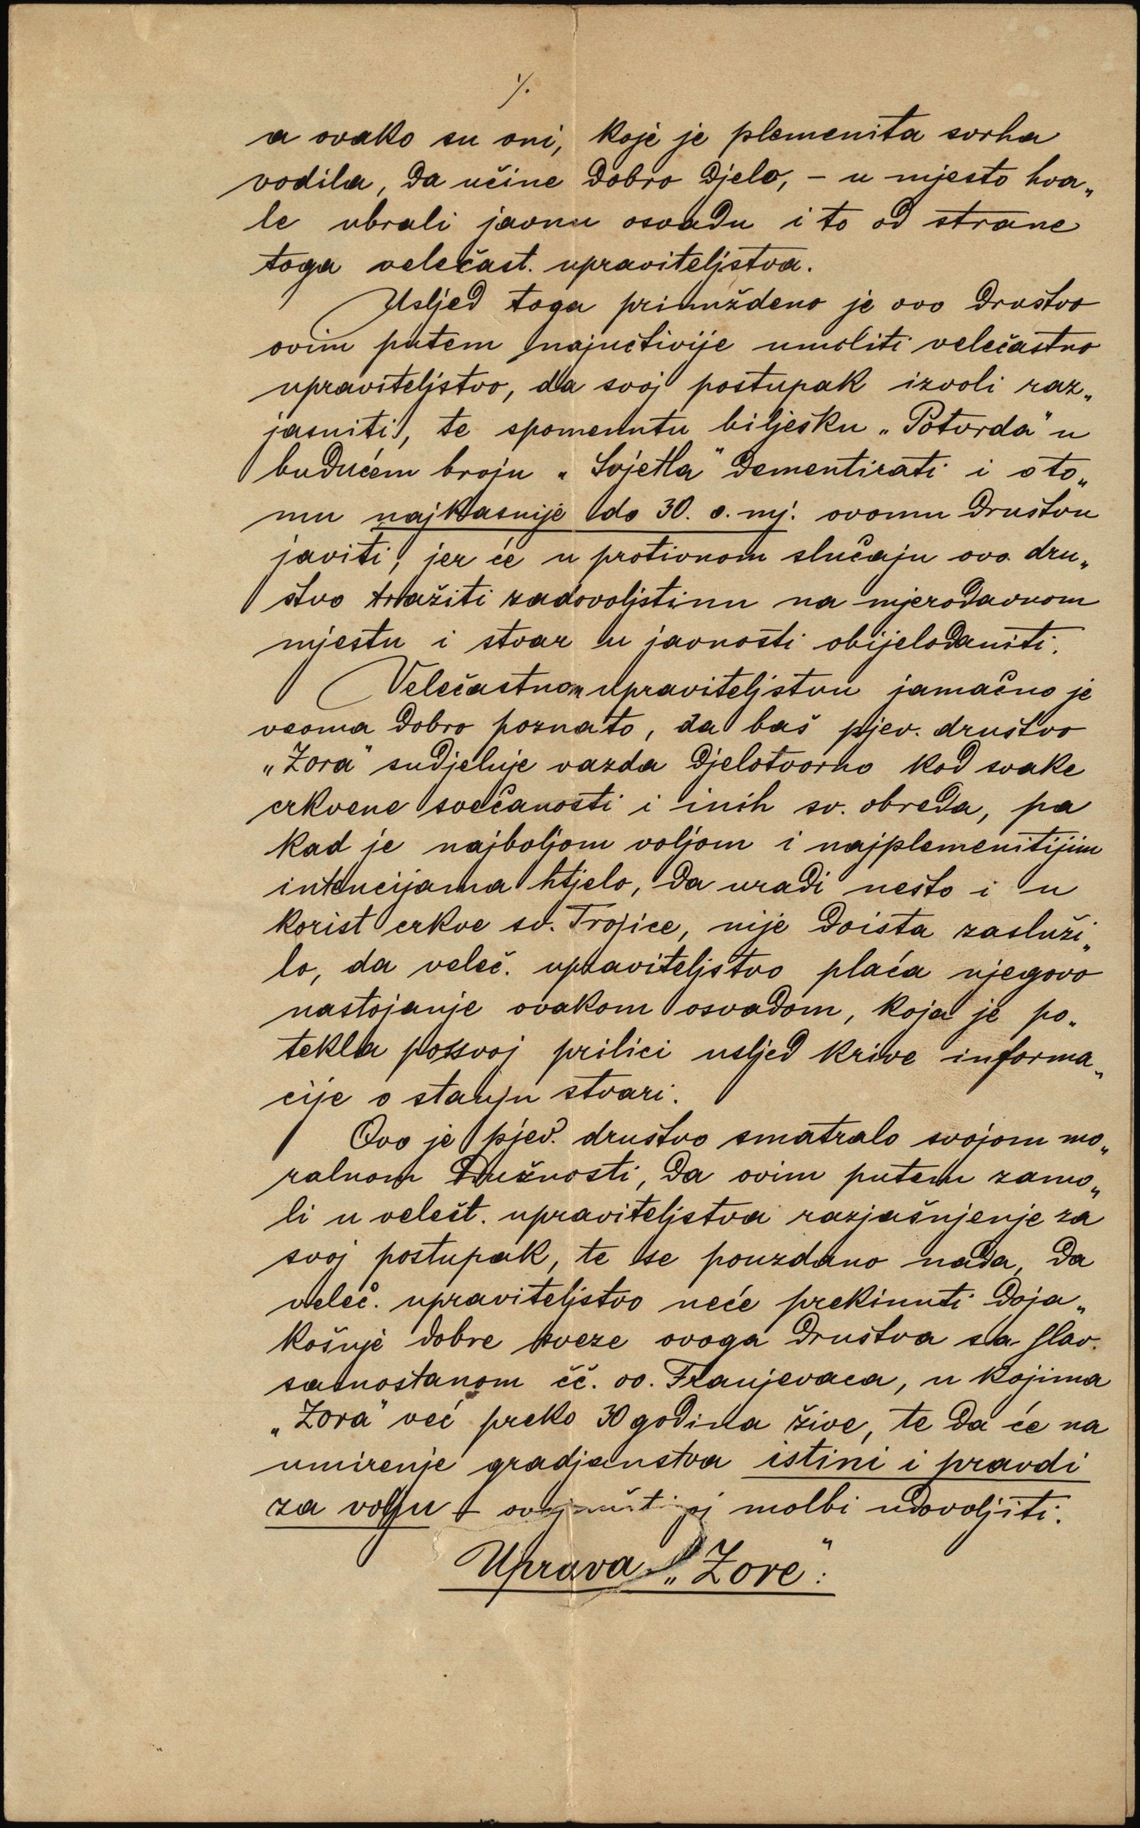 ·/.
a ovako su oni, koje je plemenita svrha
vodila, da učine dobro djelo, – u mjesto hva„
le ubrali javnu osvadu i to od strane
toga velečast. upraviteljstva.
Usljed toga prinuždeno je ovo društvo
ovim putem najučtivije umoliti velečastno
upraviteljstvo, da svoj postupak izvoli raz„
jasniti, te spomenutu bilješku „Potvrda" u
budućem broju „Svjetla" dementirati i o to„
mu najkasnije do 30. o. mj. ovomu društvu
javiti, jer će u protivnom slučaju ovo dru„
štvo tražiti zadovoljštinu na mjerodavnom
mjestu i stvar u javnosti obijelodaniti.
Velečastnom upraviteljstvu jamačno je
veoma dobro poznato, da baš pjev. društvo
„Zora" sudjeluje vazda djelotvorno kod svake
crkvene svečanosti i inih sv. obreda, pa
kad je najboljom voljom i najplemenitijim
intencijama htjelo, da uradi nešto i u
korist crkve sv. Trojice, nije doista zasluži„
lo, da veleč. upraviteljstvo plaća njegovo
nastojanje ovakom osvadom, koja je po„
tekla posvoj prilici usljed krive informa„
cije o stanju stvari.
Ovo je pjev. društvo smatralo svojom mo„
ralnom dužnosti, da ovim putem zamo„
li u velešt. upraviteljstva razjašnjenje za
svoj postupak, te se pouzdano nada, da
veleč. upraviteljstvo neće prekinuti doja„
košnje dobre sveze ovoga društva sa slav.
samostanom čč. oo. Franjevaca, u kojima
„Zora" već preko 30 godina žive, te da će na
umirenje gradjanstva istini i pravdi
za volju – molbi udovoljiti.
Uprava „Zore":